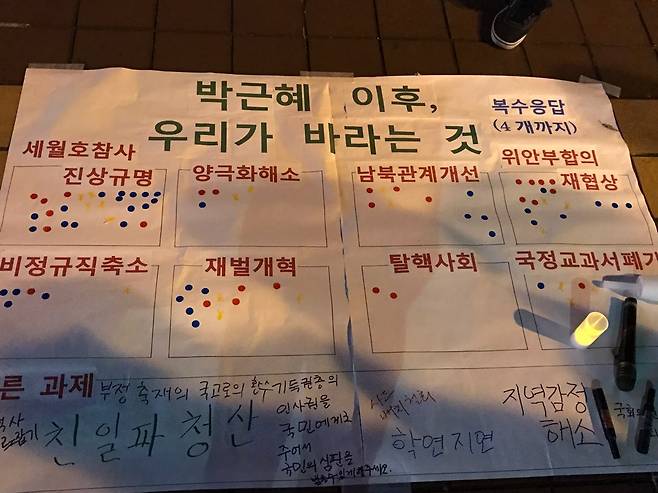 박근혜 이후,
우리가 바라는 것
복수응답
(4개까지)
세월호참사
진상규명
양극화해소
남북관계개선
위안부합의
재협상
비정규직축소
재벌개혁
탈핵사회
국정교과서폐기
른 과제
부정축재의 국고로의 환수
기득권층의
인사권을
국민에게로
주어서
국민의 심판을
친일파청산
학연지연
지역감정
해소
국회의